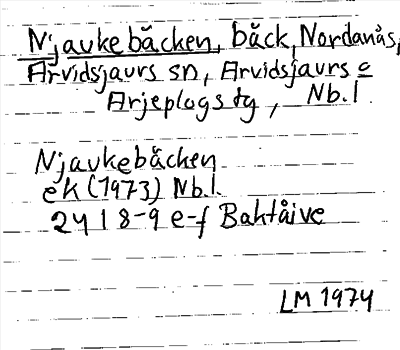 Njaukebäcken, bäck, Nordanås,
Arvidsjaurs sn, Arvidsjaurs o
Arjeplogs tg, Nb.l
Njaukebäcken
ek (1973) Nb.l.
2418-9 e-f Baktåive
LM 1974